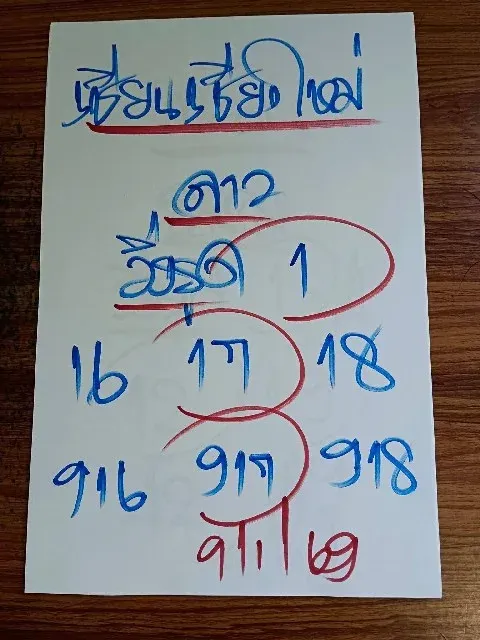 เซียนเชียงใหม่
ลาว
วิ่งรูด 1
16 17 18
916 917 918
9/1/69